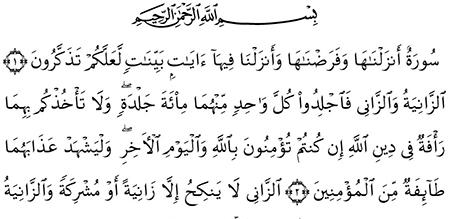 بِسْمِ ٱللَّهِ ٱلرَّحْمَٰنِ ٱلرَّحِيمِ
سُورَةٌ أَنزَلْنَٰهَا وَفَرَضْنَٰهَا وَأَنزَلْنَا فِيهَآ ءَايَٰتٍۭ بَيِّنَٰتٍ لَّعَلَّكُمْ تَذَكَّرُونَ ﴿١﴾
ٱلزَّانِيَةُ وَٱلزَّانِى فَٱجْلِدُوا۟ كُلَّ وَٰحِدٍ مِّنْهُمَا مِا۟ئَةَ جَلْدَةٍ ۖ وَلَا تَأْخُذْكُم بِهِمَا
رَأْفَةٌ فِى دِينِ ٱللَّهِ إِن كُنتُمْ تُؤْمِنُونَ بِٱللَّهِ وَٱلْيَوْمِ ٱلْءَاخِرِ ۖ وَلْيَشْهَدْ عَذَابَهُمَا
طَآئِفَةٌ مِّنَ ٱلْمُؤْمِنِينَ ﴿٢﴾ ٱلزَّانِى لَا يَنكِحُ إِلَّا زَانِيَةً أَوْ مُشْرِكَةً وَٱلزَّانِيَةُ